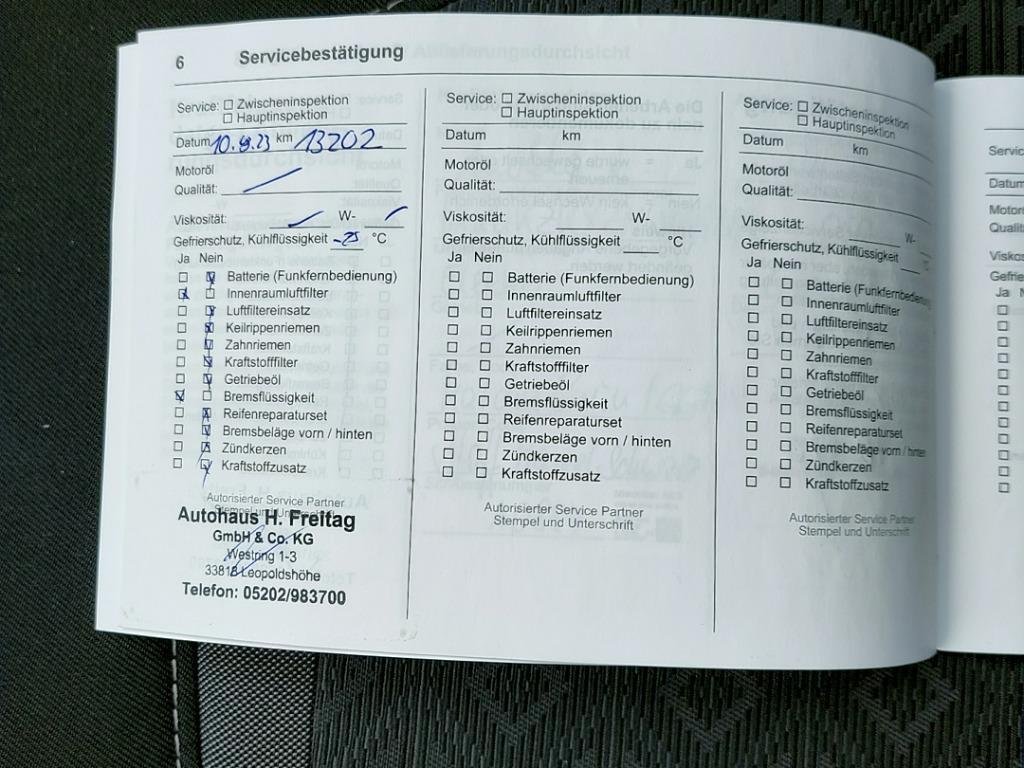 6 Servicebestätigung
Service: ☐ Zwischeninspektion
☐ Hauptinspektion
Datum 10.9.23 km 13202
Motoröl
Qualität:
Viskosität: W-
Gefrierschutz, Kühlflüssigkeit -25 °C
Ja Nein
Batterie (Funkfernbedienung)
Innenraumluftfilter
Luftfiltereinsatz
Keilrippenriemen
Zahnriemen
Kraftstofffilter
Getriebeöl
Bremsflüssigkeit
Reifenreparaturset
Bremsbeläge vorn / hinten
Zündkerzen
Kraftstoffzusatz
Autorisierter Service Partner
Stempel und Unterschrift
Autohaus H. Freitag
GmbH & Co. KG
Westring 1-3
33818 Leopoldshöhe
Telefon: 05202/983700
Service: ☐ Zwischeninspektion
☐ Hauptinspektion
Datum km
Motoröl
Qualität:
Viskosität: W-
Gefrierschutz, Kühlflüssigkeit °C
Ja Nein
☐ ☐ Batterie (Funkfernbedienung)
☐ ☐ Innenraumluftfilter
☐ ☐ Luftfiltereinsatz
☐ ☐ Keilrippenriemen
☐ ☐ Zahnriemen
☐ ☐ Kraftstofffilter
☐ ☐ Getriebeöl
☐ ☐ Bremsflüssigkeit
☐ ☐ Reifenreparaturset
☐ ☐ Bremsbeläge vorn / hinten
☐ ☐ Zündkerzen
☐ ☐ Kraftstoffzusatz
Autorisierter Service Partner
Stempel und Unterschrift
Service: ☐ Zwischeninspektion
☐ Hauptinspektion
Datum km
Motoröl
Qualität:
Viskosität: W-
Gefrierschutz, Kühlflüssigkeit °C
Ja Nein
☐ ☐ Batterie (Funkfernbedienung
☐ ☐ Innenraumluftfilter
☐ ☐ Luftfiltereinsatz
☐ ☐ Keilrippenriemen
☐ ☐ Zahnriemen
☐ ☐ Kraftstofffilter
☐ ☐ Getriebeöl
☐ ☐ Bremsflüssigkeit
☐ ☐ Reifenreparaturset
☐ ☐ Bremsbeläge vorn / hinten
☐ ☐ Zündkerzen
☐ ☐ Kraftstoffzusatz
Autorisierter Service Partner
Stempel und Unterschrift
Servic
Datum
Motor
Qualit
Visko
Gefrie
Ja